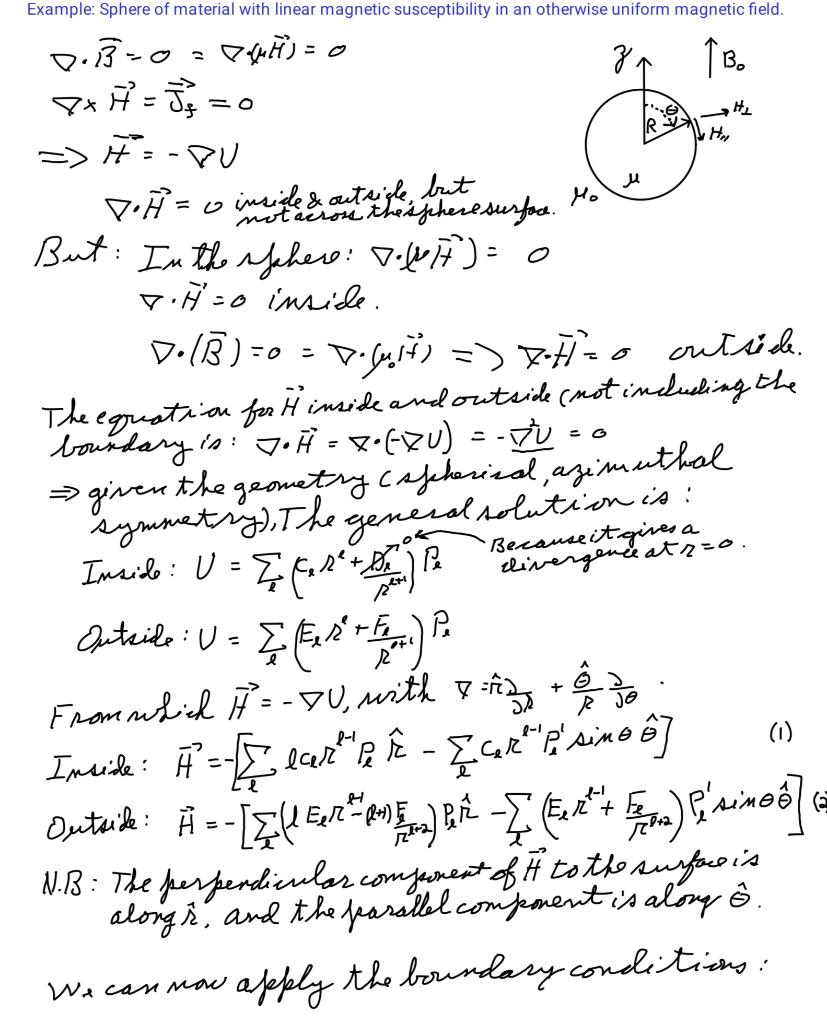 Example: Sphere of material with linear magnetic susceptibility in an otherwise uniform magnetic field.
∇·B⃗ = 0 = ∇·(μH⃗) = 0
∇× H⃗ = J⃗_f = 0
=> H⃗ = -∇U
∇·H⃗ = 0 inside & outside, but
not across the sphere surface.
z
B₀
θ
R
H⊥
H∥
μ
μ₀
But: In the sphere: ∇·(μH⃗) = 0
∇·H⃗ = 0 inside.
∇·(B⃗) = 0 = ∇·(μ₀H⃗) => ∇·H⃗ = 0 outside.
The equation for H⃗ inside and outside (not including the
boundary is: ∇·H⃗ = ∇·(-∇U) = -∇²U = 0
⇒ given the geometry (spherical, azimuthal
symmetry), The general solution is:
Because it gives a
divergence at r=0.
Inside: U = Σ_l (C_l r^l + D_l/r^{l+1}) P_l
0
Outside: U = Σ_l (E_l r^l + F_l/r^{l+1}) P_l
From which H⃗ = -∇U, with ∇ = r̂ ∂/∂r + θ̂/r ∂/∂θ.
Inside: H⃗ = -[Σ_l l C_l r^{l-1} P_l r̂ - Σ_l C_l r^{l-1} P_l' sinθ θ̂] (1)
Outside: H⃗ = -[Σ_l (l E_l r^{l-1} - (l+1) F_l/r^{l+2}) P_l r̂ - Σ_l (E_l r^{l-1} + F_l/r^{l+2}) P_l' sinθ θ̂] (2)
N.B: The perpendicular component of H⃗ to the surface is
along r̂, and the parallel component is along θ̂.
We can now apply the boundary conditions: